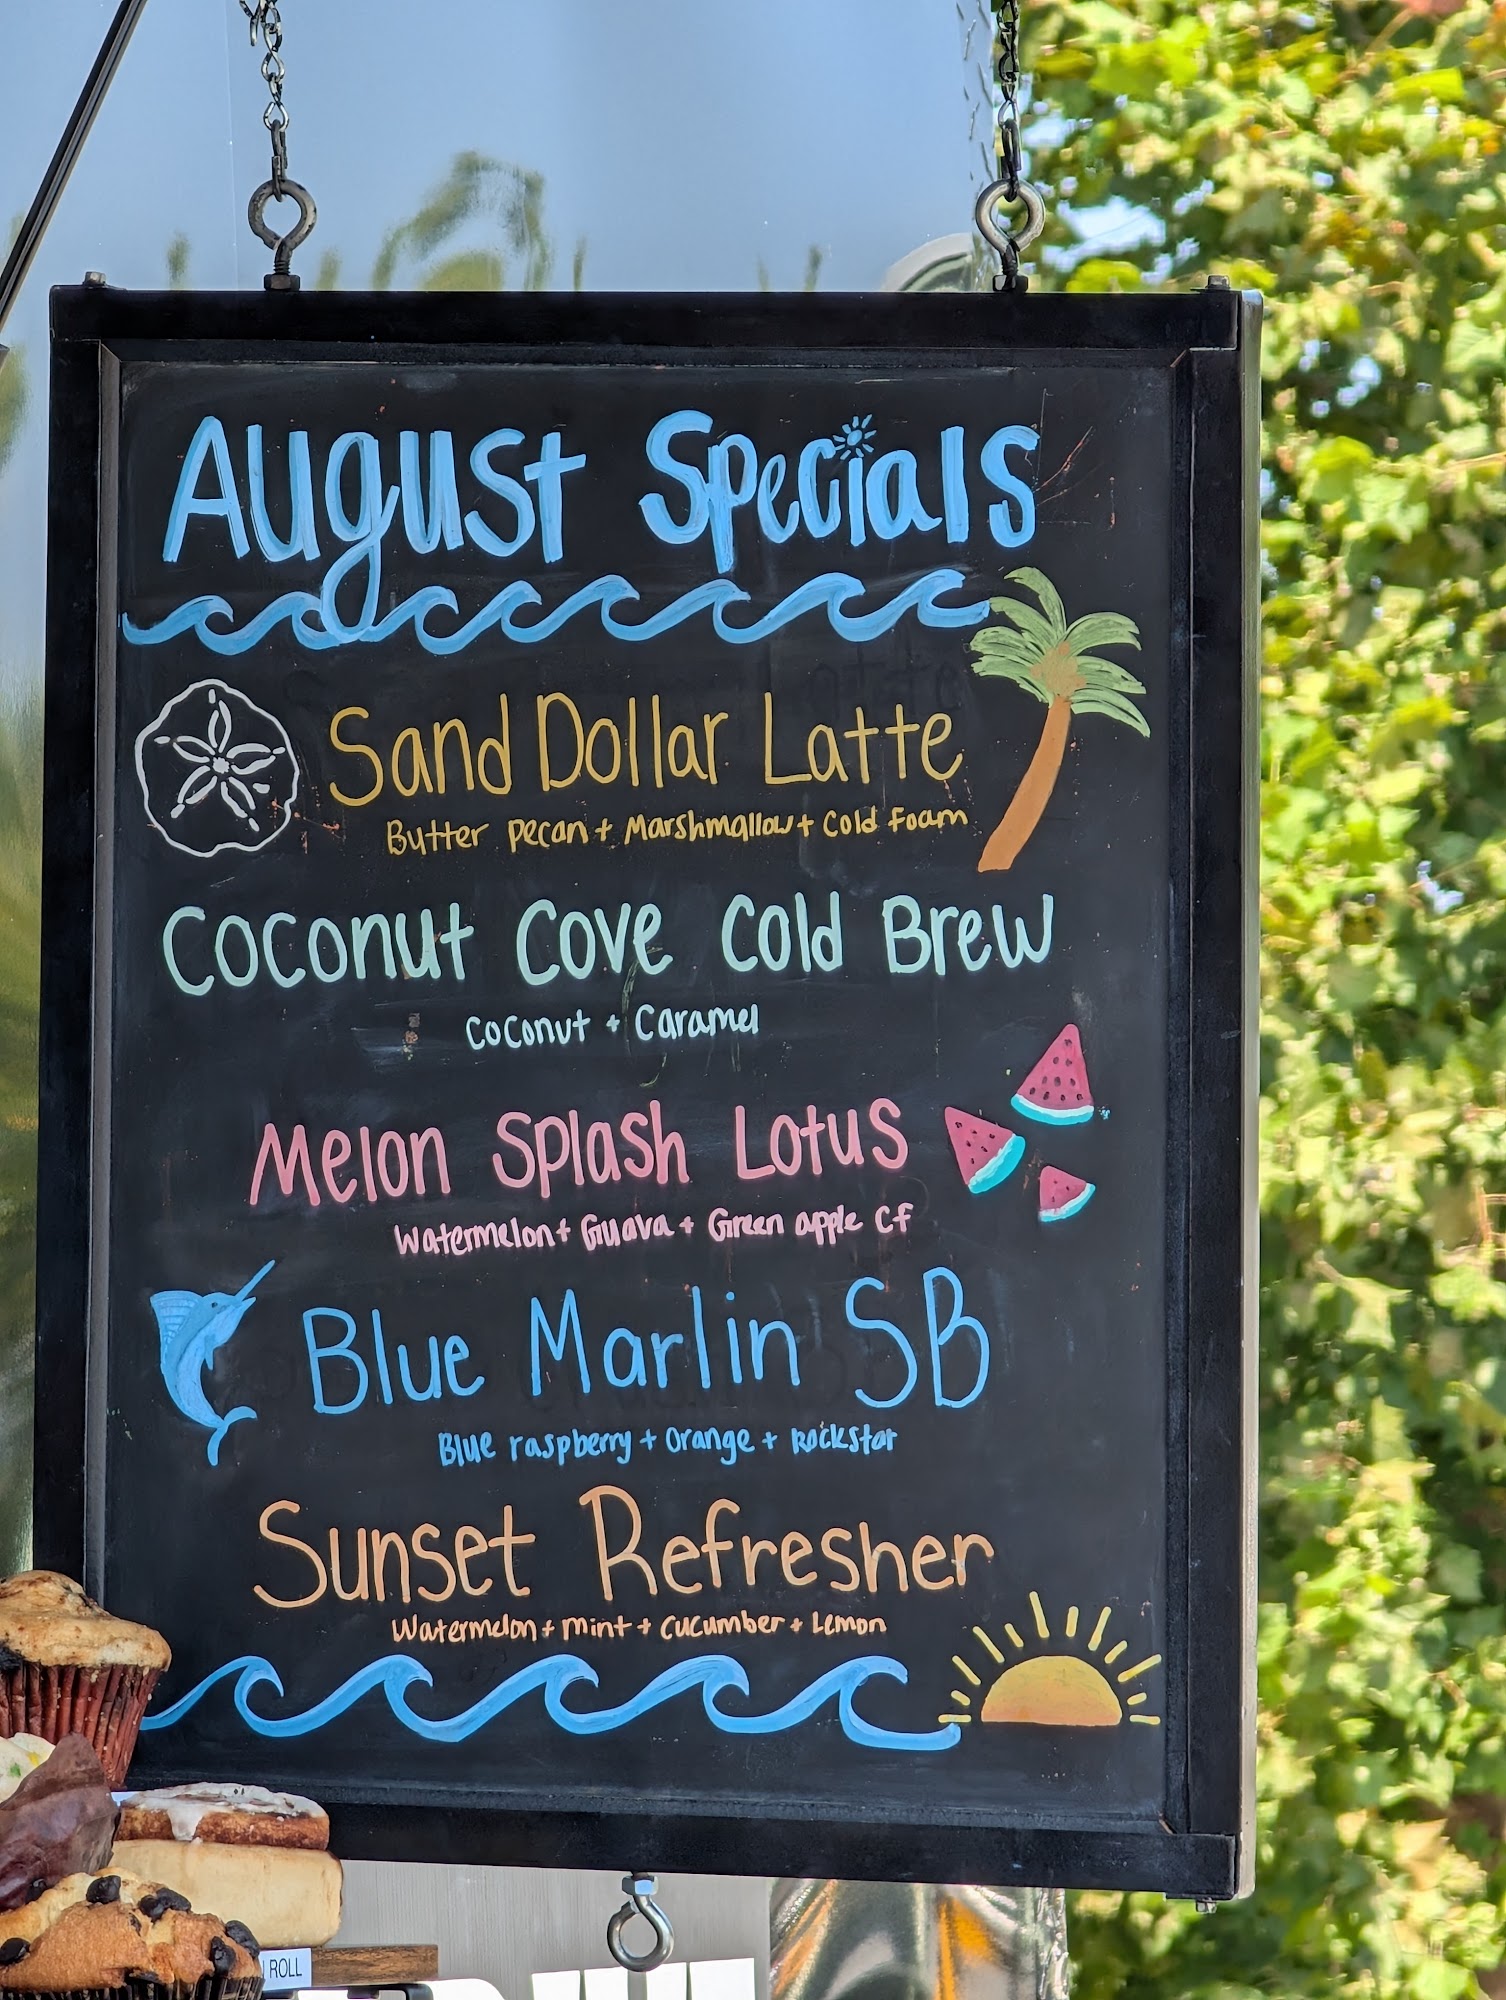 August Specials
Sand Dollar Latte
Butter Pecan + Marshmallow + Cold Foam
Coconut Cove Cold Brew
Coconut + Caramel
Melon Splash Lotus
Watermelon + Guava + Green apple CF
Blue Marlin SB
Blue raspberry + Orange + Rockstar
Sunset Refresher
Watermelon + Mint + Cucumber + Lemon
ROLL